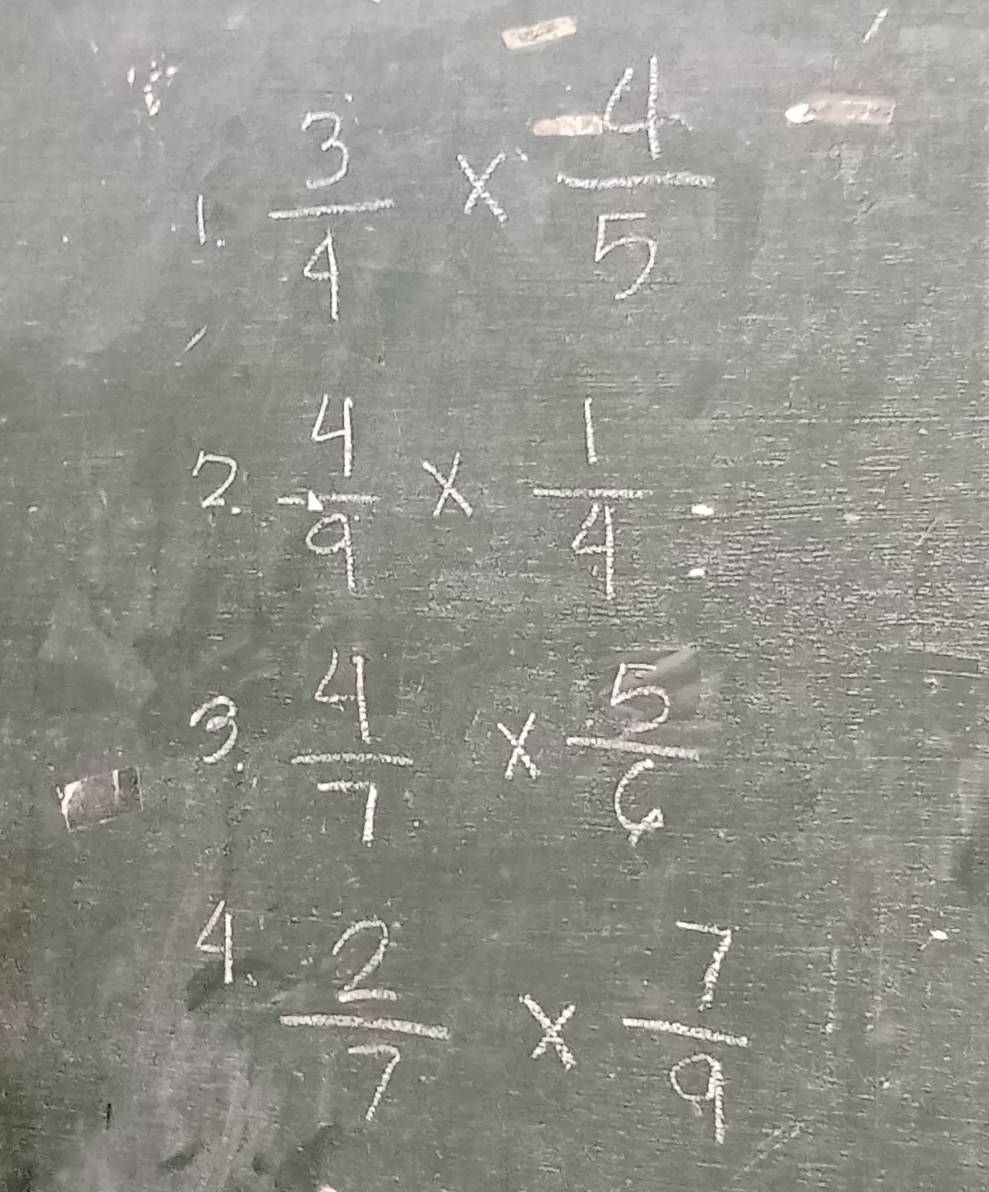 1. 3/4 × 4/5
2. 4/9 × 1/4
3. 4/7 × 5/6
4. 2/7 × 7/9